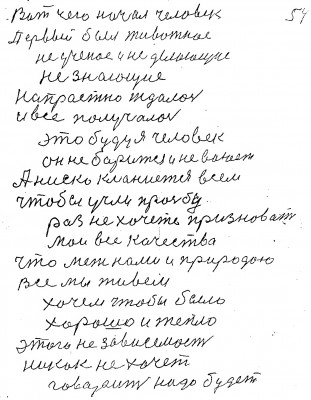 Вот чего начал человек 54
Первый был животное
не ученое и не думающие
не знающие
Напрастно ждалоя
и все получалоя
это будуя человек
он не борится и не
А ниско кланиется всем
чтобы учли прозбу
раз не хочеть призноват
мои все качества
что меж нами и природою
все мы живем
хочем чтобы было
хорошо и тепло
этого не зависемост
никак не хочет
говарит надо будет